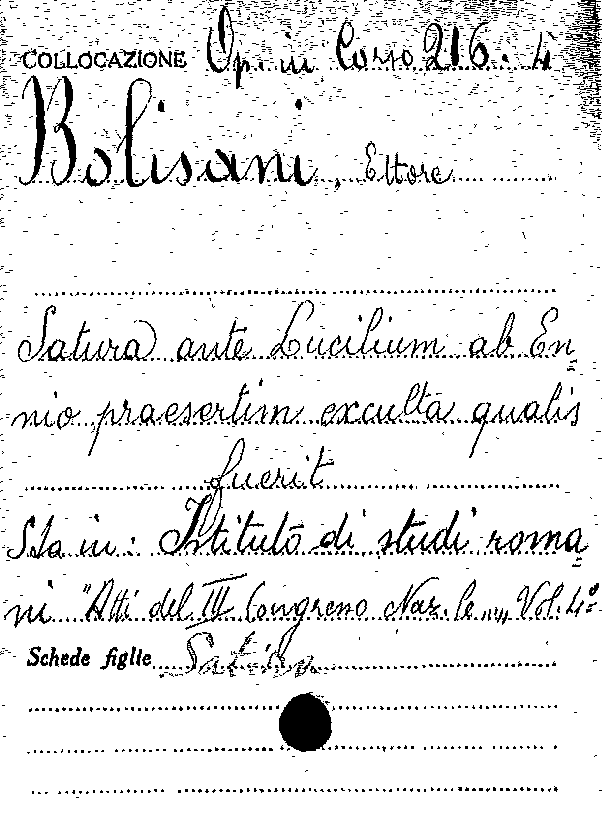 COLLOCAZIONE Op. in Corso 216. 4
Bolisani, Ettore
Satura ante Lucilium ab En
nio praesertim exculta qualis
fuerit
Sta in: Istituto di studi roma
ni "Atti del III Congresso Naz.le „„ Vol. 4º
Schede figlie Satira